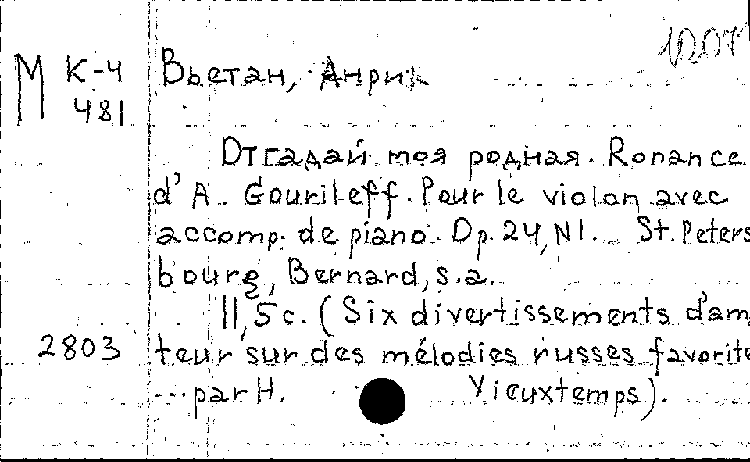 1207
М К-4 Вьетан, Анри
481
Отгадай моя родная. Romance
d'A. Gourileff. Pour le violon avec
accomp. de piano. Op. 24, N1. St. Peters
bourg, Bernard, s.a.
11, 5 с. (Six divertissements d'am
2803 teur sur des mélodies russes favorite
... par H. Vieuxtemps).